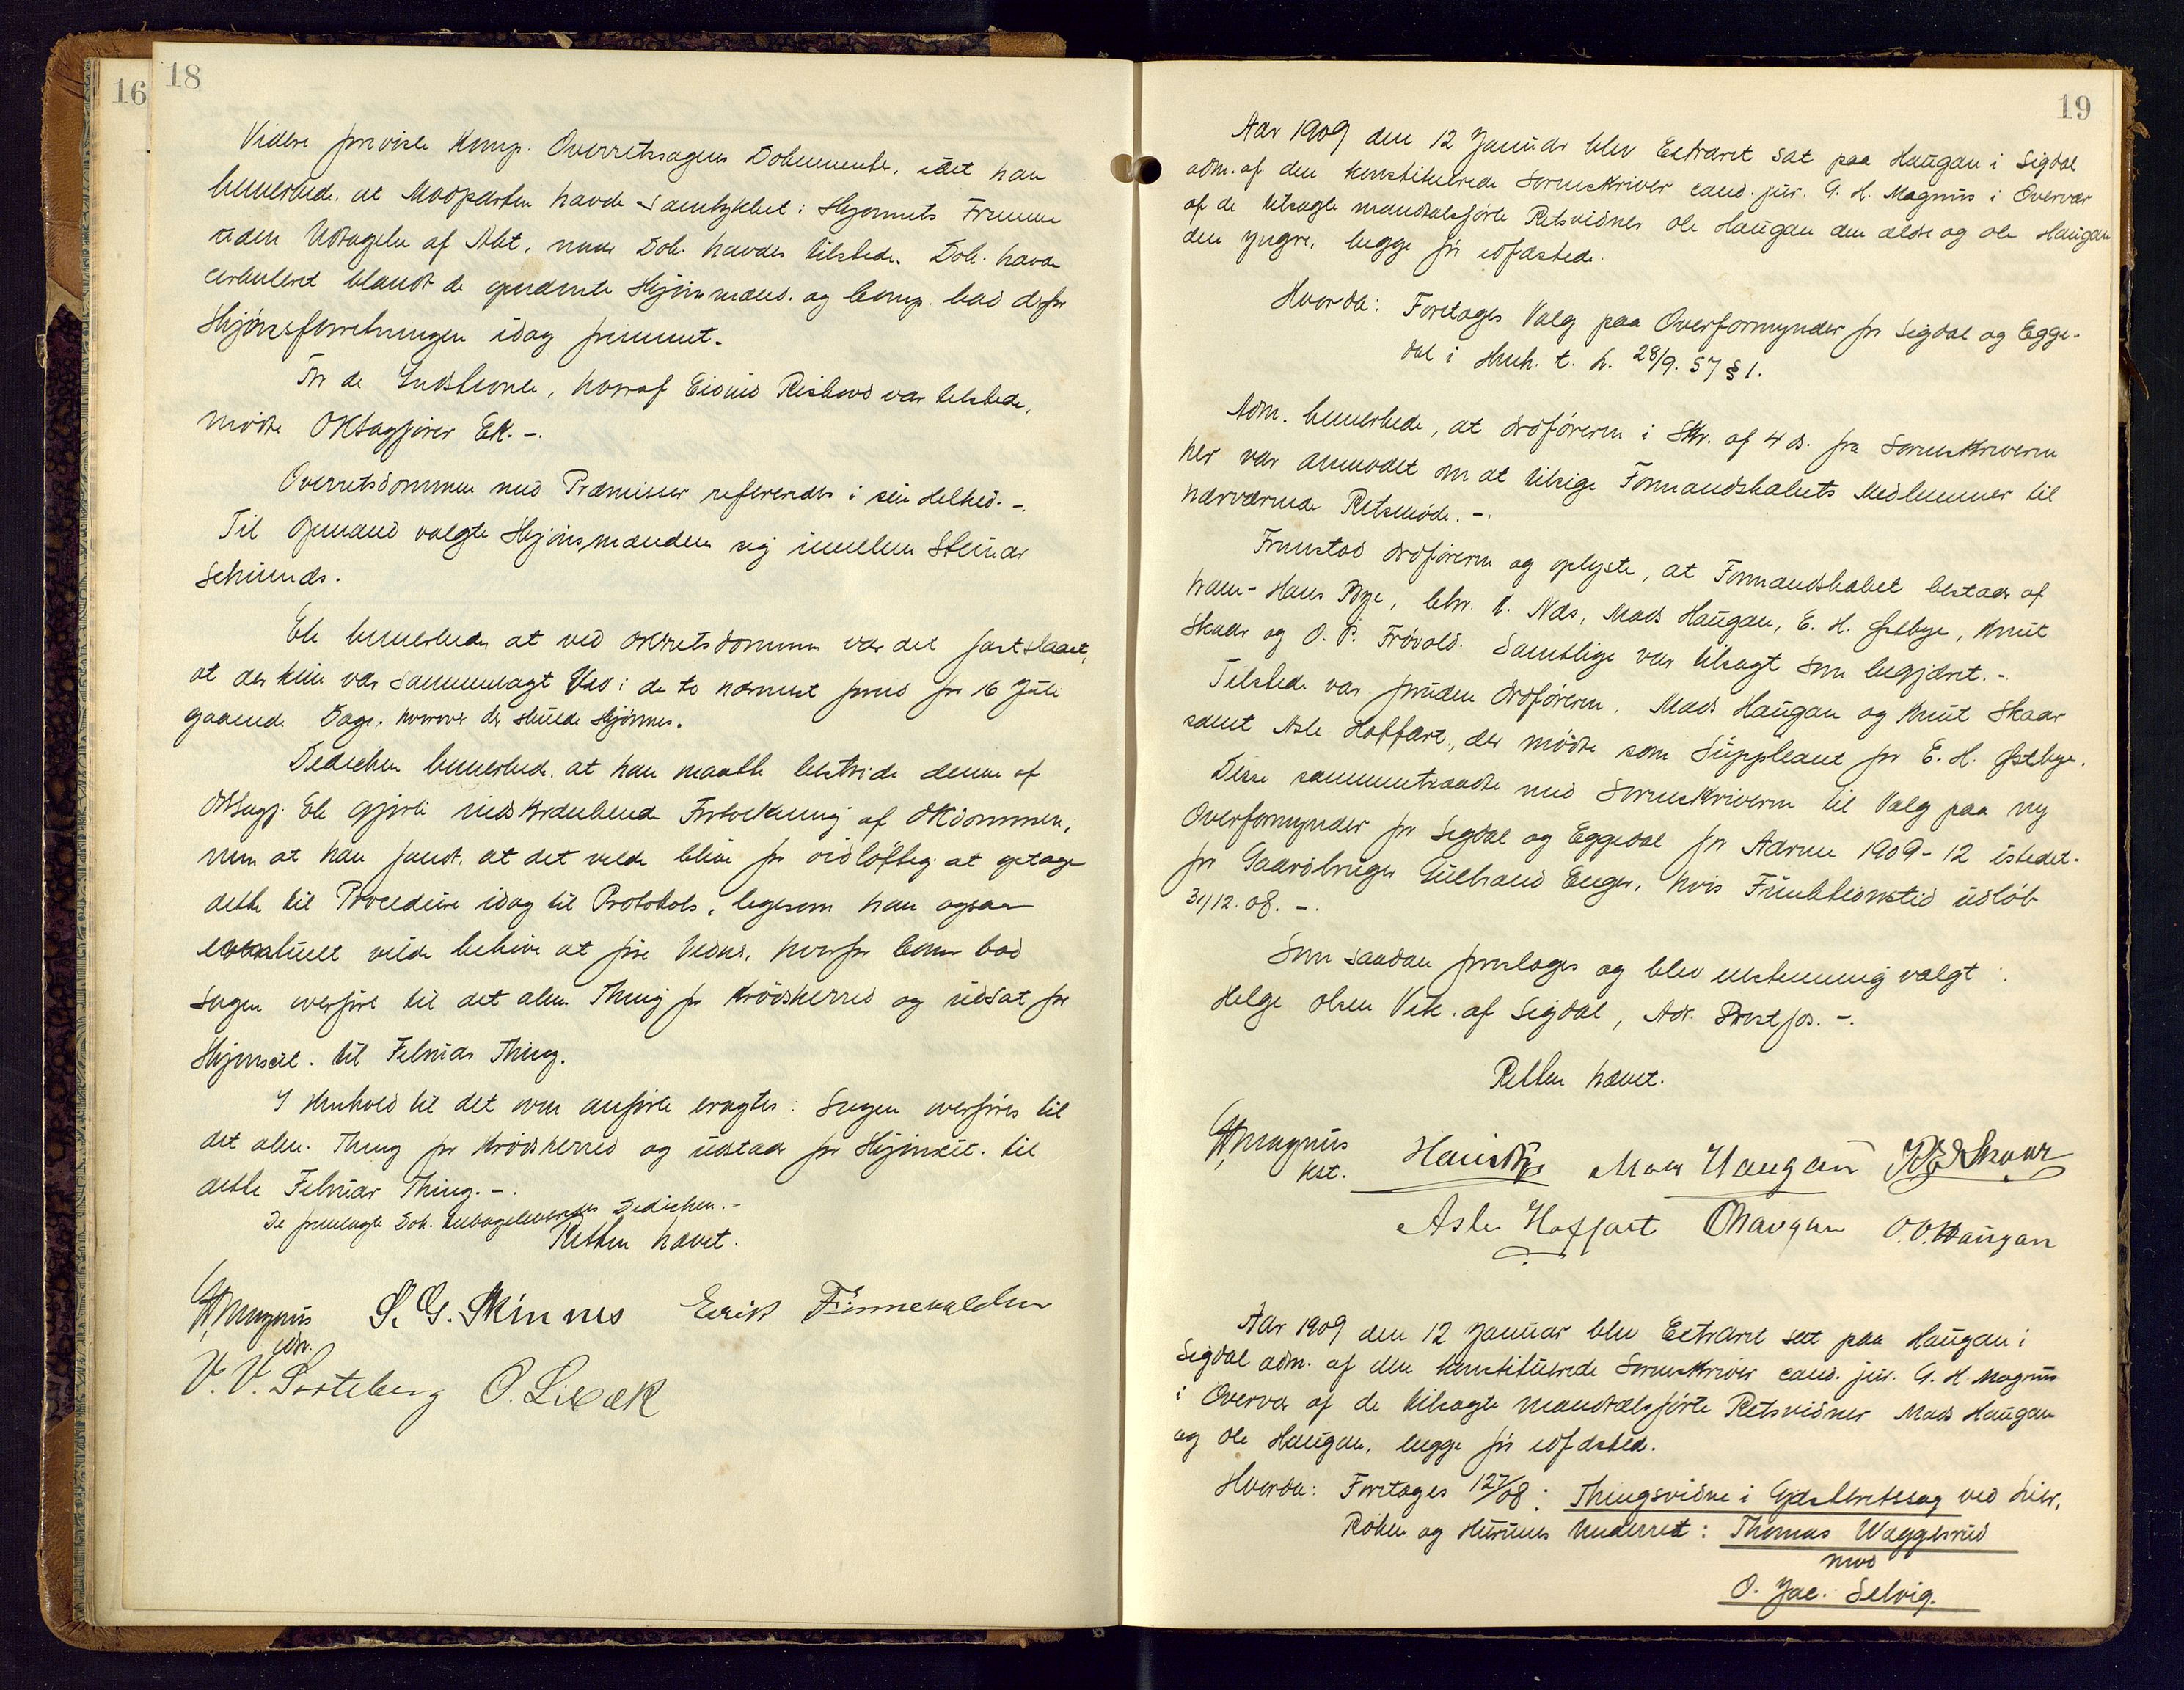 16
18
Videre foreviste Komp. Overretssagens Dokumenter, idet han
bemerkede, at Modparten havde samtykket i Skjønnets Fremme
uden Udtagelse af Akt, naar Dok. havdes tilstede. Dok. havde
cirkuleret blandt de opnævnte Skjønsmænd og Comp. bad derfor
Skjønsforretningen idag fremmet.
For de Indstevnte, hvoraf Eivind Ristvedt var tilstede,
mødte OKsagfører Ek. -.
Overretsdommen med Præmisser refereredes i sin Helhed. -.
Til Opmand valgte Skjønsmændene sig imellem Steinar
Skinnes.
Ek bemerkede, at ved OKretsdommen var det fastslaaet,
at der kun var sammenlagt Ved i de to nærmest forud for 16 Juli
gaaende Dage, hvorover der skulde skjønnes.
Dedichen bemerkede, at han maatte bestride denne af
OKsagf. Ek gjorte indskrænkende Fortolkning af OKdommen,
men at han fandt, at det vilde blive for vidløftig at optage
dette til Procedure idag til Protokols, ligesom han ogsaa
eventuelt vilde behøve at føre Vidner, hvorfor Comp bad
Sagen overført til det alm. Thing for Krødsherred og udsat for
Skjønsvit. til Februar Thing.
I Henhold til det ovenanførte eragtes: Sagen overføres til
det alm. Thing for Krødsherred og udstaar for Skjønsvit. til
dette Februar Thing. -.
De fremlagte Dok. tilbageleveredes Dedichen. -
Retten hævet.
GHMagnus S. G. Skinnes Erik
edsv.
V. V. Sorteberg O. Libæk
19
Aar 1909 den 12 Januar blev Extraret sat paa Haugan i Sigdal
adm. af den konstituerede Sorenskriver cand. jur. G. H. Magnus i Overvær
af de tilsagte mandtalsførte Retsvidner Ole Haugan den ældre og Ole Haugan
den yngre, begge før edfæstede.
Hvorda: Foretages Valg paa Overformynder for Sigdal og Egge-
dal i Henh. t. L. 28/9. 57 § 1.
Adm. bemerkede, at Ordføreren i Skr. af 4 ds. fra Sorenskriveren
her var anmodet om at tilsige Formandskabets Medlemmer til
nærværende Retsmøde. -.
Fremstod Ordføreren og oplyste, at Formandskabet bestaar af
ham - Hans Bye, Chr. K. Næs, Mads Haugan, E. H. Østbye, Knut
Skaar og O. P. Frøvold. Samtlige var tilsagt som begjæret. -.
Tilstede var foruden Ordføreren, Mads Haugan og Knut Skaar
samt Asle Hoffart, der mødte som Suppleant for E. H. Østbye.
Disse sammentraadte med Sorenskriveren til Valg paa ny
Overformynder for Sigdal og Eggedal for Aarene 1909-12 istedet-
for Gaardbruger Gulbrand Enger, hvis Funktionstid udløb
31/12. 08. -.
Som saadan foresloges og blev enstemmig valgt:
Helge Olsen Vik, af Sigdal, Adr. Prestfos. -.
Retten hævet.
GHMagnus Hans Bye Mads Haugan K E Skaar
kst.
Asle Hoffart OHaugan O. O. Haugan
Aar 1909 den 12 Januar blev Extraret sat paa Haugan i
Sigdal adm. af den konstituerede Sorenskriver cand. jur. G. H. Magnus
i Overvær af de tilsagte mandtalsførte Retsvidner Mads Haugan
og Ole Haugan, begge før edfæsted.
Hvorda: Foretages 127/08: Thingsvidne i Gjæsteretssag ved Lier,
Røken og Hurums Underret: Thomas Waggesrud
mod
O. Jac. Selvig.